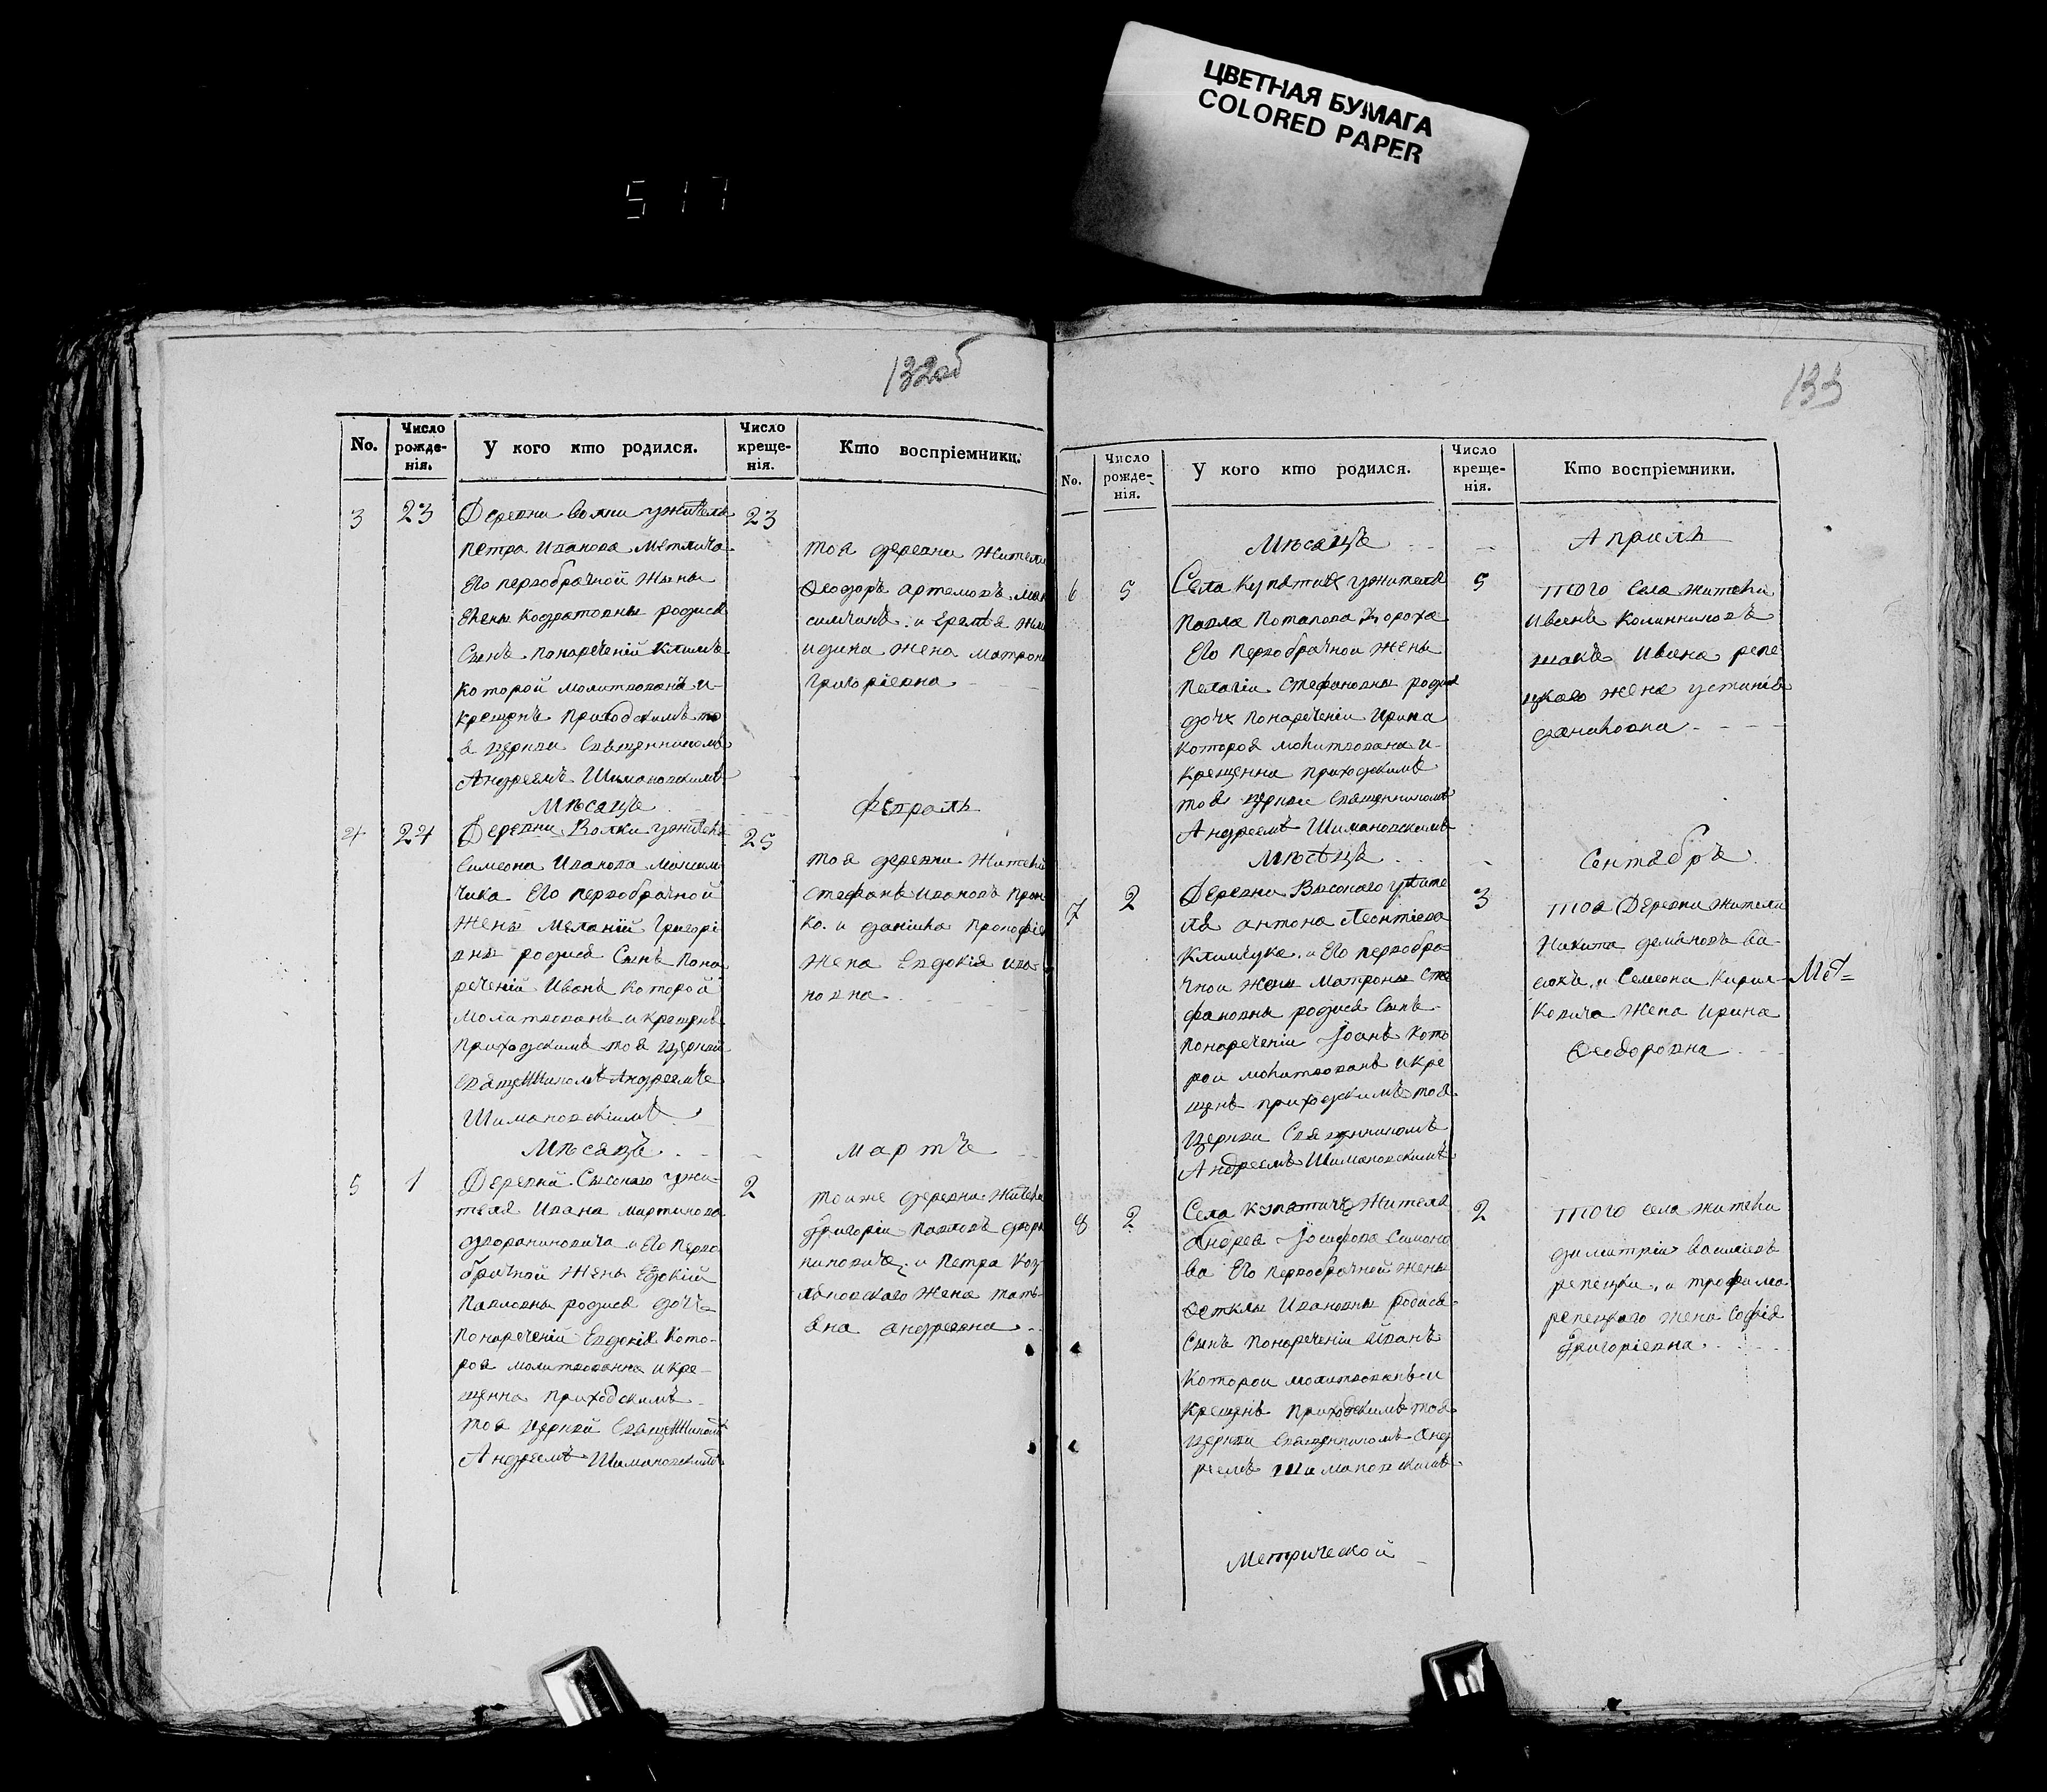 ЦВЕТНАЯ БУМАГА
COLORED PAPER
517
132об
No.
Число рожде-нія.
У кого кто родился.
Число креще-нія.
Кто воспріемники.
3 23 Деревни Волки ужителя 23
Петра Иванова Метлича
Его первобрачной Жены
Елены Кодратовны родися
Сынъ Понареченій Климъ
Которой молитвованъ и-
крещенъ Приходскимъ то
я церкви Священникомъ
Андреемъ Шимановскимъ
тоя деревни Жители
Феодоръ Артемовъ
григоріевна
Мѣсяцъ Февраль
4 24 Деревни Волки ужителя 25
Симеона Иванова Максим
чика Его первобрачной
Жены Меланій Григорі
вны родися Сынъ Пона
реченій Иванъ Которой
Молитвованъ и крещенъ
Приходскимъ тоя Церкви
Священникомъ Андреемъ
Шимановскимъ
тоя деревни Жители
Стефанъ Ивановъ Прон
ко. и данила Прокофіе
Жена Евдокія Ива-
новна
Мѣсяцъ мартъ
5 1 Деревни Сысокаго ужи- 2
теля Ивана Мартинова
двораниновича и Его Перво
брачной Жены Евдокій
Павловны родися дочь
Понареченій Евдокія Кото-
роя молитвованна и кре-
щенна Приходскимъ
тоя Церкви Священникомъ
Андреемъ Шимановскимъ
тоиже деревни Жители
Григоріи Павловъ двора
ниновичъ и Петра Коз
ловскаго Жена тать-
яна андреевна
133
No.
Число рожде-нія.
У кого кто родился.
Число креще-нія.
Кто воспріемники.
Мѣсяцъ Априль
6 5 Села Купятичъ ужителя 5
Павла Потапова
Его Первобрачной Жены
Пелагіи Стефановны родися
дочь Понареченіи Ирина
Котороя молитвована и-
крещенна приходскимъ
тоя церкви Священникомъ
Андреемъ Шимановскимъ
того Села жители
Иванъ
Ивана репе
цкаго жена устинія
даниловна
Мѣсяцъ Сентябръ
7 2 Деревни Высокаго ужите 3
ля антона Леонтіева
Климчука и Его первобра
чной Жены Матроны Сте
фановны родися Сынъ
Понареченіи Іоанъ Кото
рой молитвованъ и кре
щенъ приходскимъ тоя
Церкви Священникомъ
Андреемъ Шимановскимъ
тоя Деревни жители
Никита демяновъ Ва-
сюкъ, и Семеона Кирил-
ковича Жена Ирина
Феодоровна
8 2 Села Купятичъ Жителя 2
Андрея Іосифова Симоно
ва Его Первобрачной Жены
Феклы Ивановны родися
Сынъ Понареченіи Иванъ
Которои молитвованъ и
Крещенъ Приходскимъ тоя
Церкви Священникомъ Анд
реемъ Шимановскимъ
того села жители
димитріи Василіевъ
репецки, и трофима
репецкого жена Софія
Григоріевна
Метрической